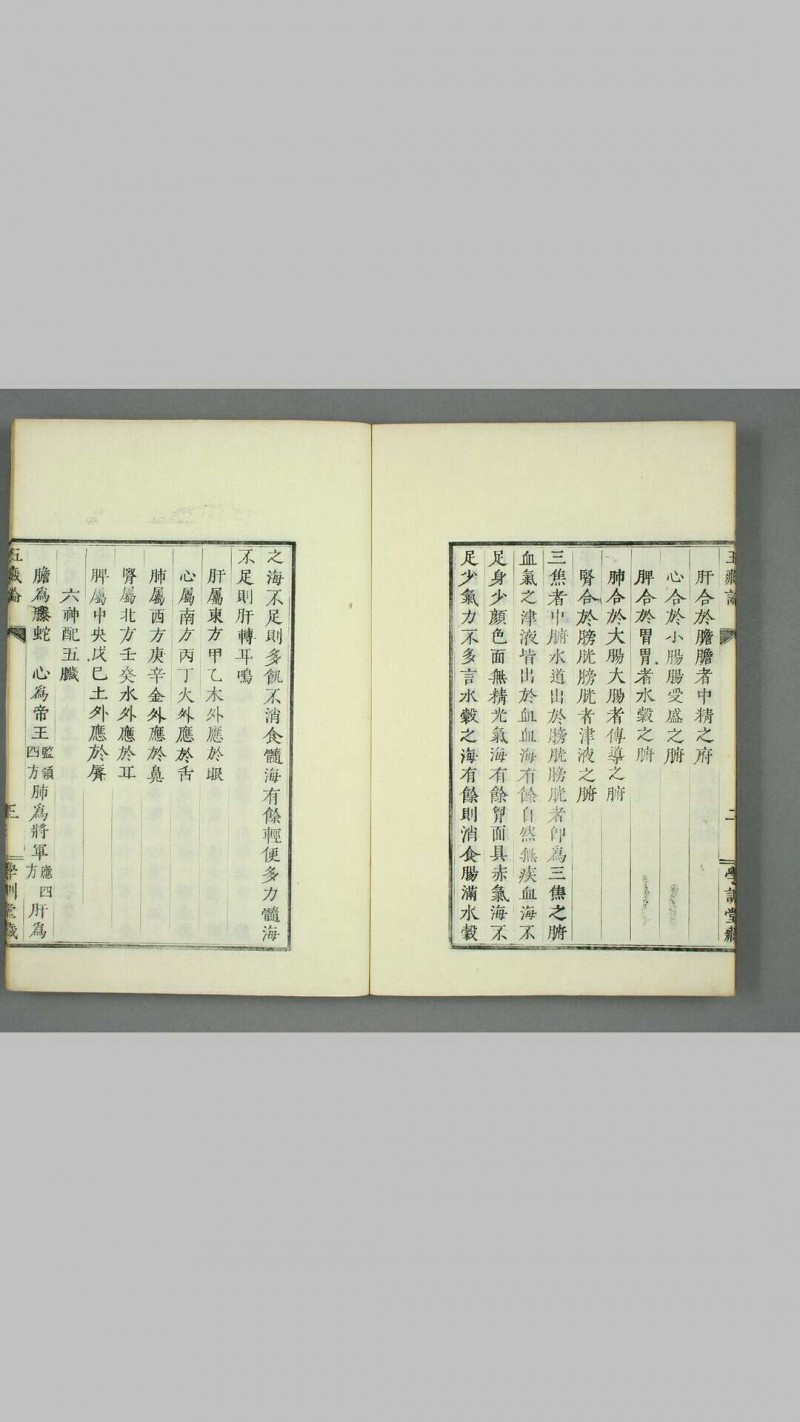 五藏論
二
學訓堂藏
肝合於膽膽者中精之府
心合於小腸腸受盛之腑
脾合於胃胃者水穀之腑
肺合於大腸大腸者傳導之腑
腎合於膀胱膀胱者津液之腑
三焦者中腑水道出於膀胱膀胱者即為三焦之腑
血氣之津液皆出於血血海有餘自然無疾血海不
足身少顏色面無精光氣海有餘胷面具赤氣海不
足少氣力不多言水穀之海有餘則消食腸滿水穀
之海不足則多飢不消食髓海有餘輕便多力髓海
不足則肝轉耳鳴
肝屬東方甲乙木外應於眼
心屬南方丙丁火外應於舌
肺屬西方庚辛金外應於鼻
腎屬北方壬癸水外應於耳
脾屬中央戊巳土外應於唇
六神配五臟
膽為螣蛇 心為帝王監領四方肺為將軍應四方肝為
五藏論
三
學訓堂藏